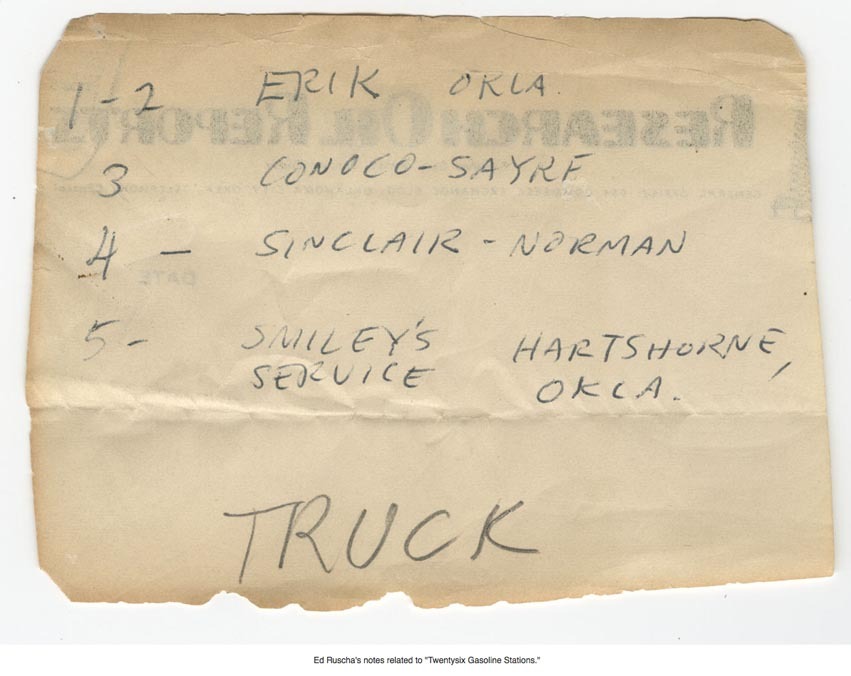 1-2 ERIK OKLA.
RESEARCH OIL REPORTS
3 CONOCO-SAYRE
4 - SINCLAIR - NORMAN
DATE
5- SMILEY'S HARTSHORNE,
SERVICE OKLA.
TRUCK
Ed Ruscha's notes related to "Twentysix Gasoline Stations."